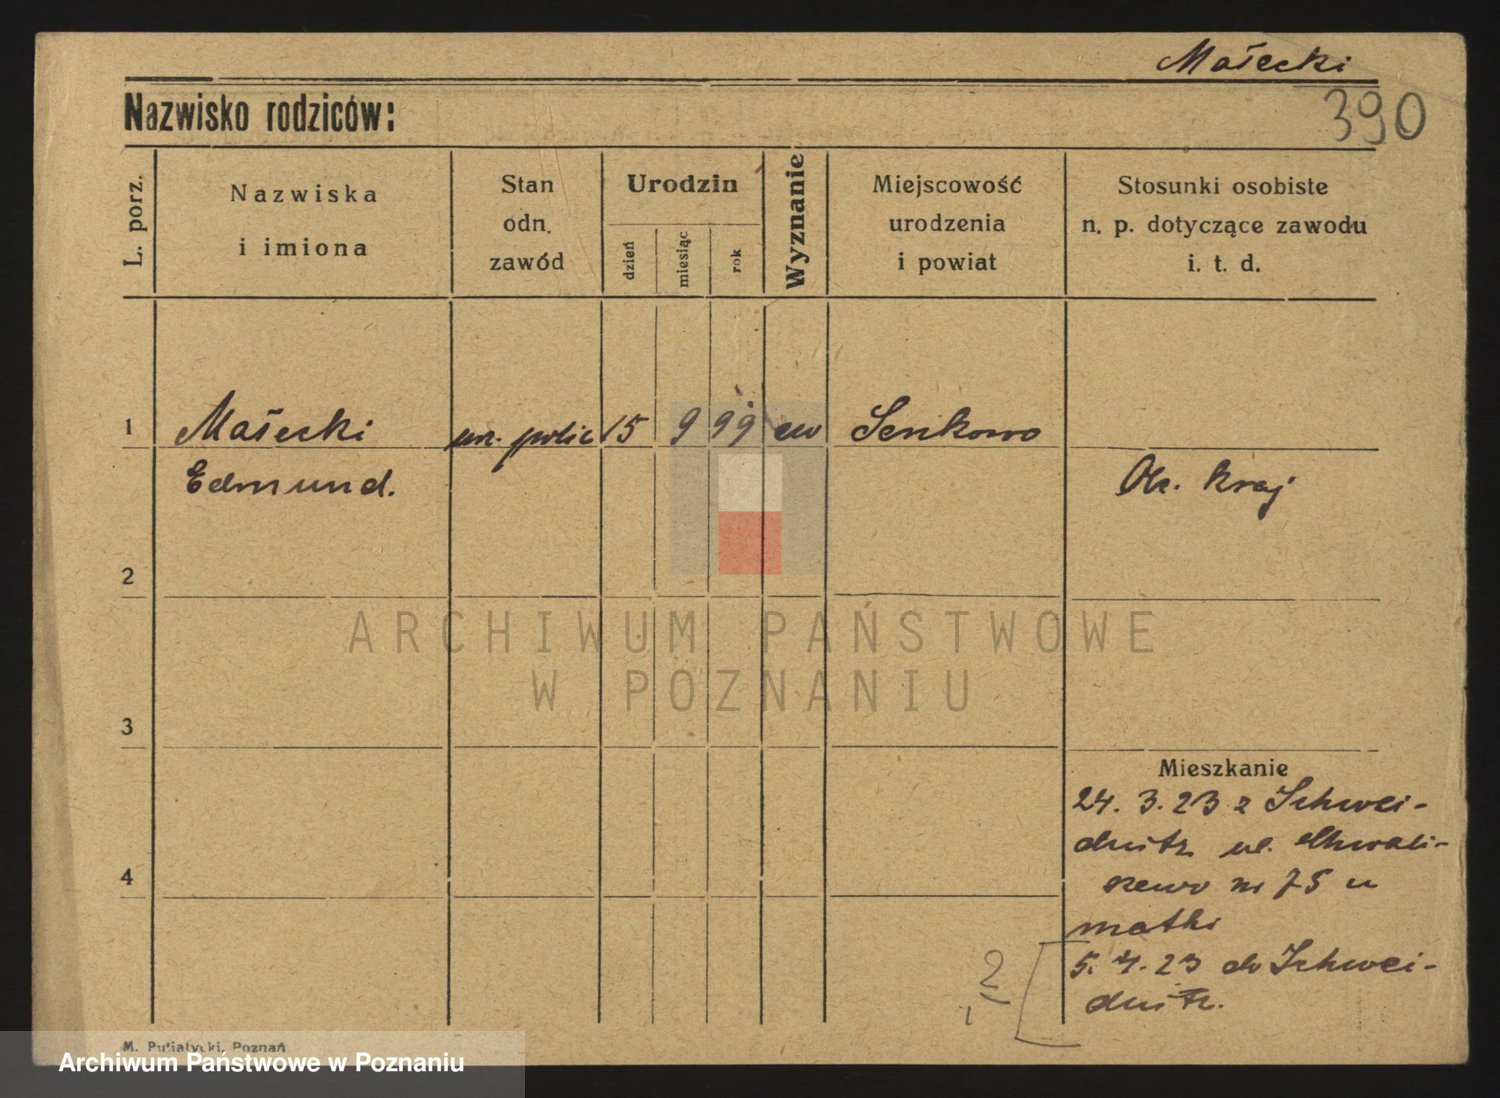 Małecki
390
Nazwisko rodziców:
L. porz.
Nazwiska
i imiona
Stan
odn.
zawód
Urodzin
dzień
miesiąc
rok
Wyznanie
Miejscowość
urodzenia
i powiat
Stosunki osobiste
n. p. dotyczące zawodu
i. t. d.
1 Małecki 15 9 99 ew Senkowo
Edmund. kraj
2
ARCHIWUM PAŃSTWOWE
W POZNANIU
3
Mieszkanie
24. 3. 23 z Schwei-
dnitz ul. Chwali-
4
szewo nr 75 u
matki
5. 4. 23 do Schwei-
dnitz.
2
M. Putiatycki, Poznań
Archiwum Państwowe w Poznaniu